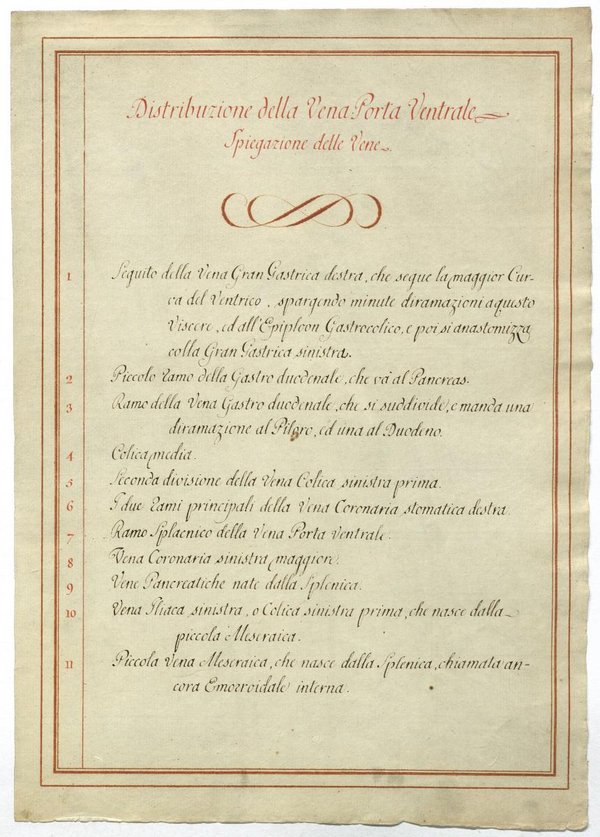 Distribuzione della Vena Porta Ventrale
Spiegazione delle Vene.
1 Seguito della Vena Gran Gastrica destra, che segue la maggior Cur-
va del Ventrico, spargendo minute diramazioni a questo
Viscere, ed all'Epiploon Gastrocolico, e poi si anastomizza
colla Gran Gastrica sinistra.
2 Piccolo ramo della Gastro duodenale, che và al Pancreas.
3 Ramo della Vena Gastro duodenale, che si suddivide, e manda una
diramazione al Piloro, ed una al Duodeno.
4 Colica media.
5 Seconda divisione della Vena Colica sinistra prima.
6 I due rami principali della Vena Coronaria stomatica destra.
7 Ramo Splacnico della Vena Porta ventrale.
8 Vena Coronaria sinistra maggiore.
9 Vene Pancreatiche nate dalla Splenica.
10 Vena Iliaca sinistra, o Colica sinistra prima, che nasce dalla
piccola Meseraica.
11 Piccola Vena Meseraica, che nasce dalla Splenica, chiamata an-
cora Emorroidale interna.